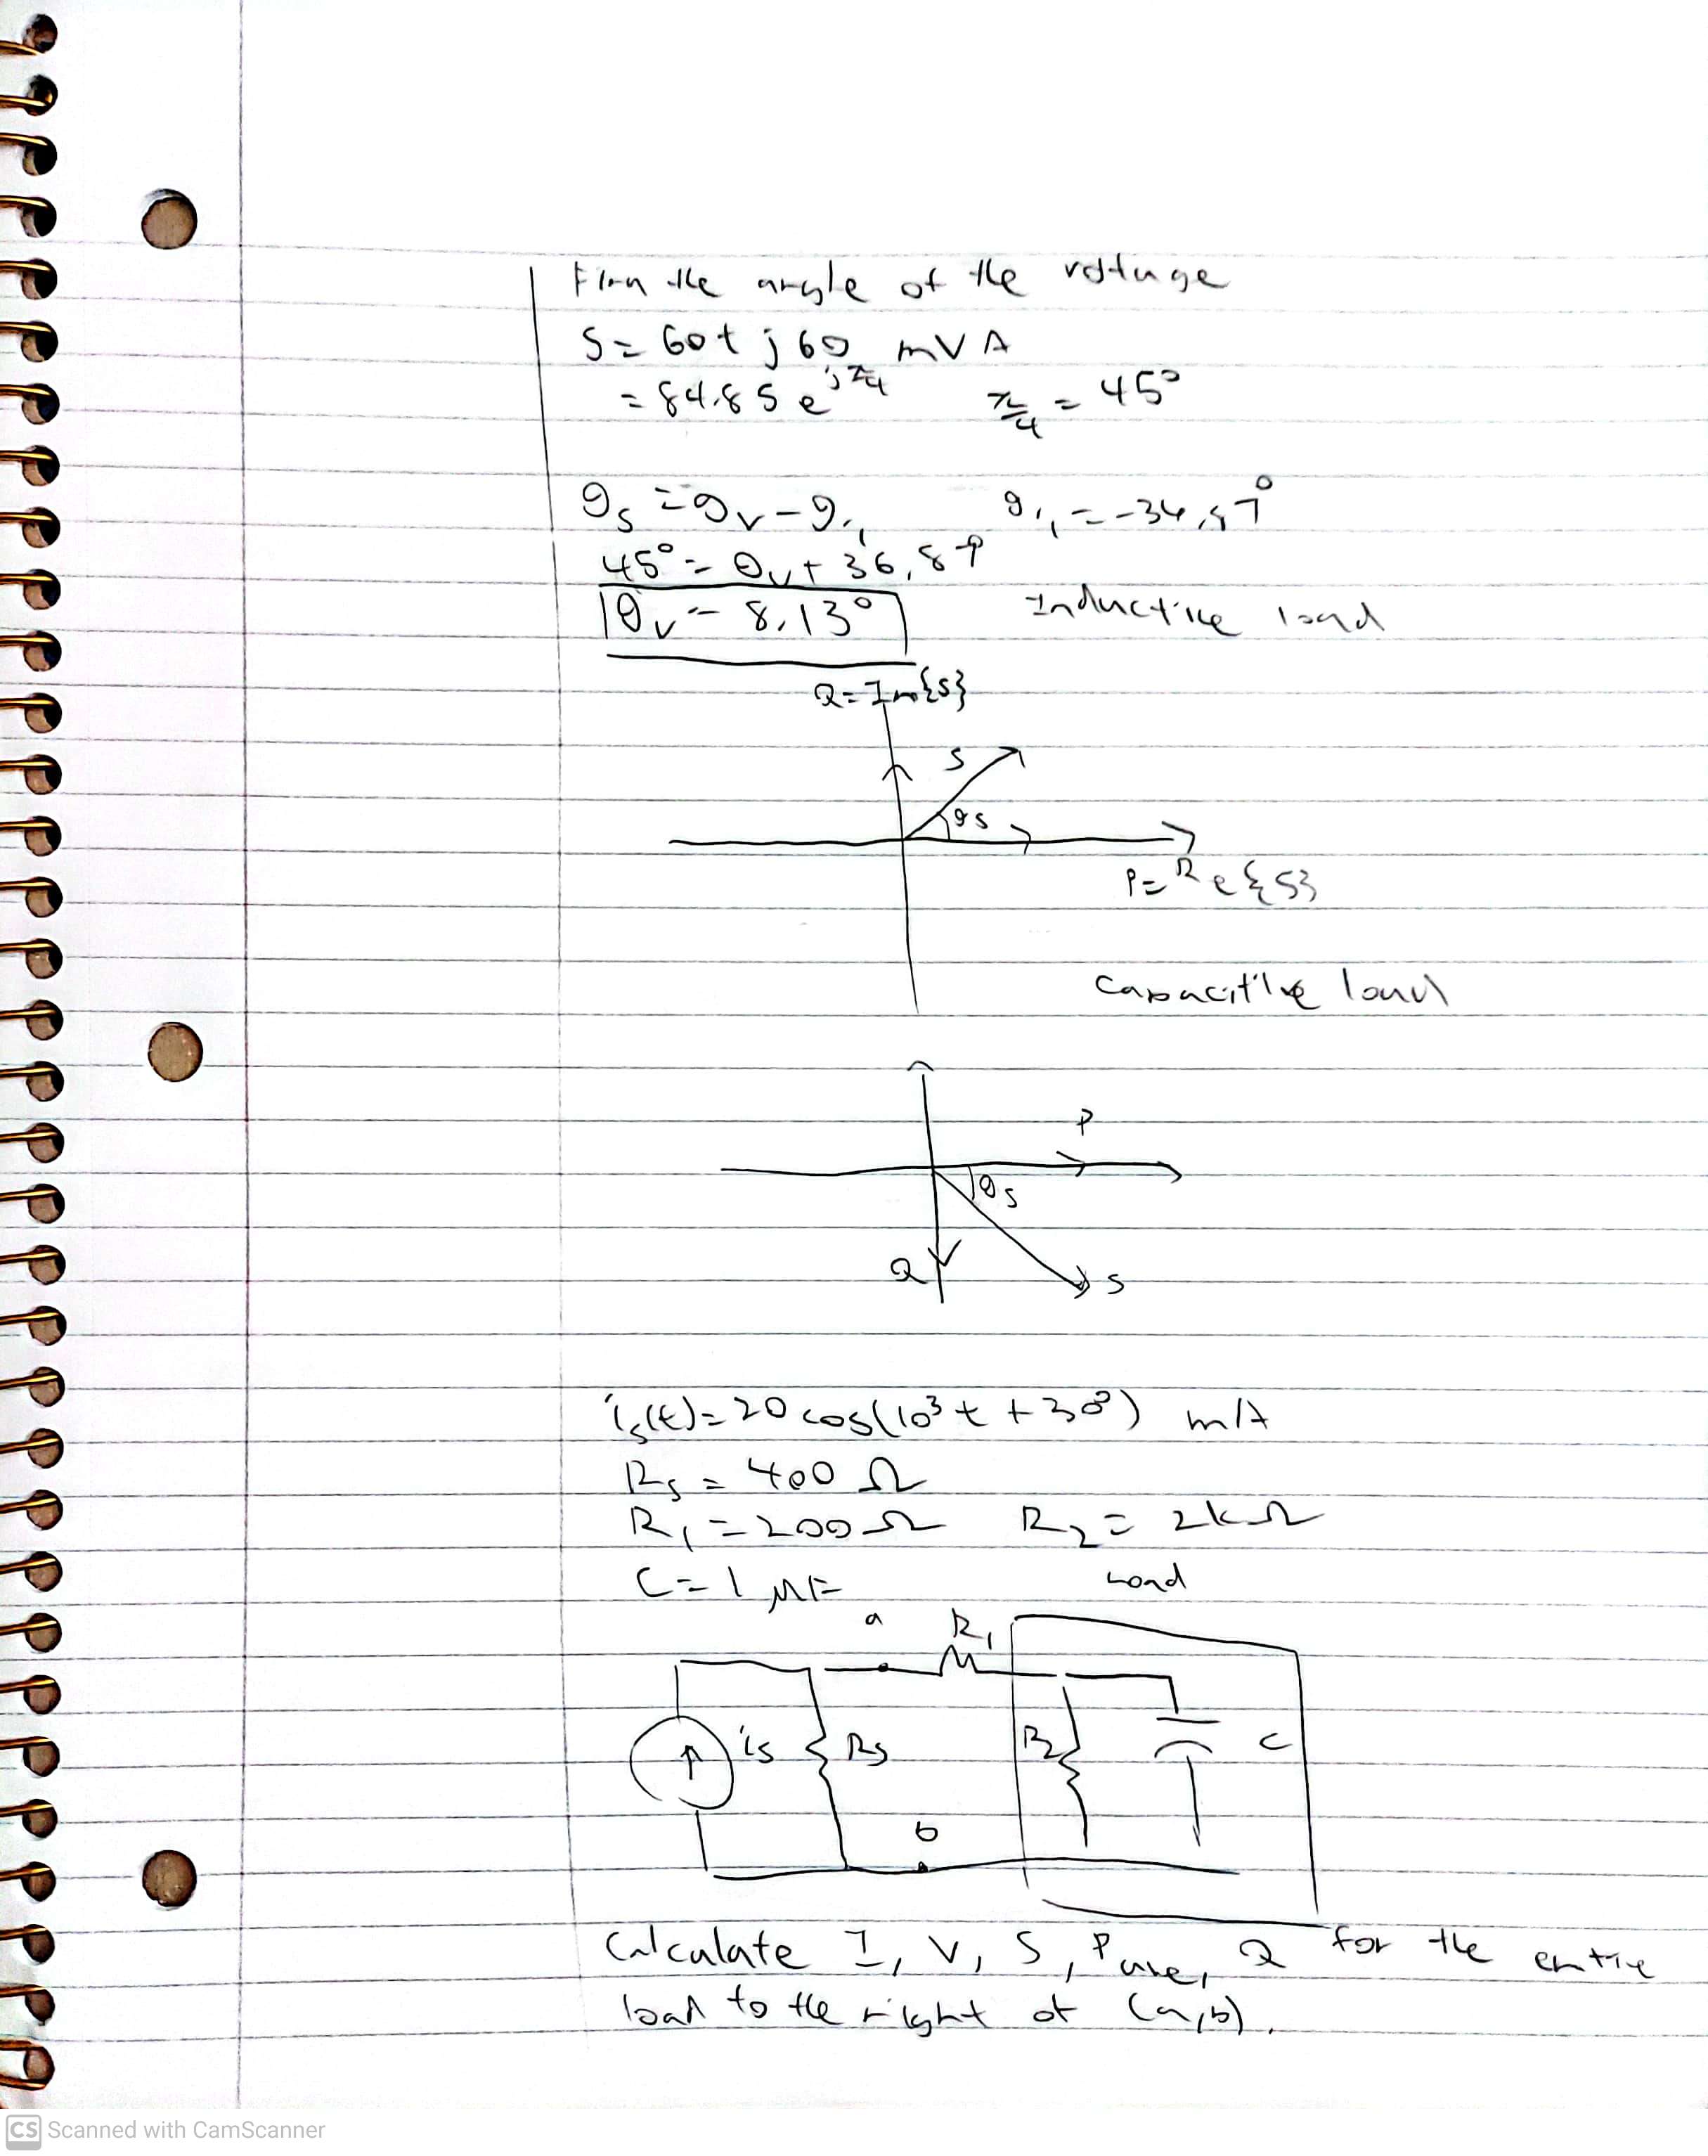 Find the angle of the voltage
S = 60 + j 60 mVA
= 84.85 e^{jπ/4} π/4 = 45°
θs = θv - θi, θi, = -36.87°
45° = θv + 36.87
θv = 8.13° Inductive load
Q = Im{s}
S
θs
P = Re{S}
Capacitive load
P
θs
Q
S
is(t) = 20 cos(10³ t + 30°) mA
Rs = 400 Ω
R₁ = 200 Ω R₂ = 2kΩ
C = 1 μF Load
a R₁
is Rs R₂ C
b
Calculate I, V, S, Pave, Q for the entire
load to the right of (a,b).
CS Scanned with CamScanner